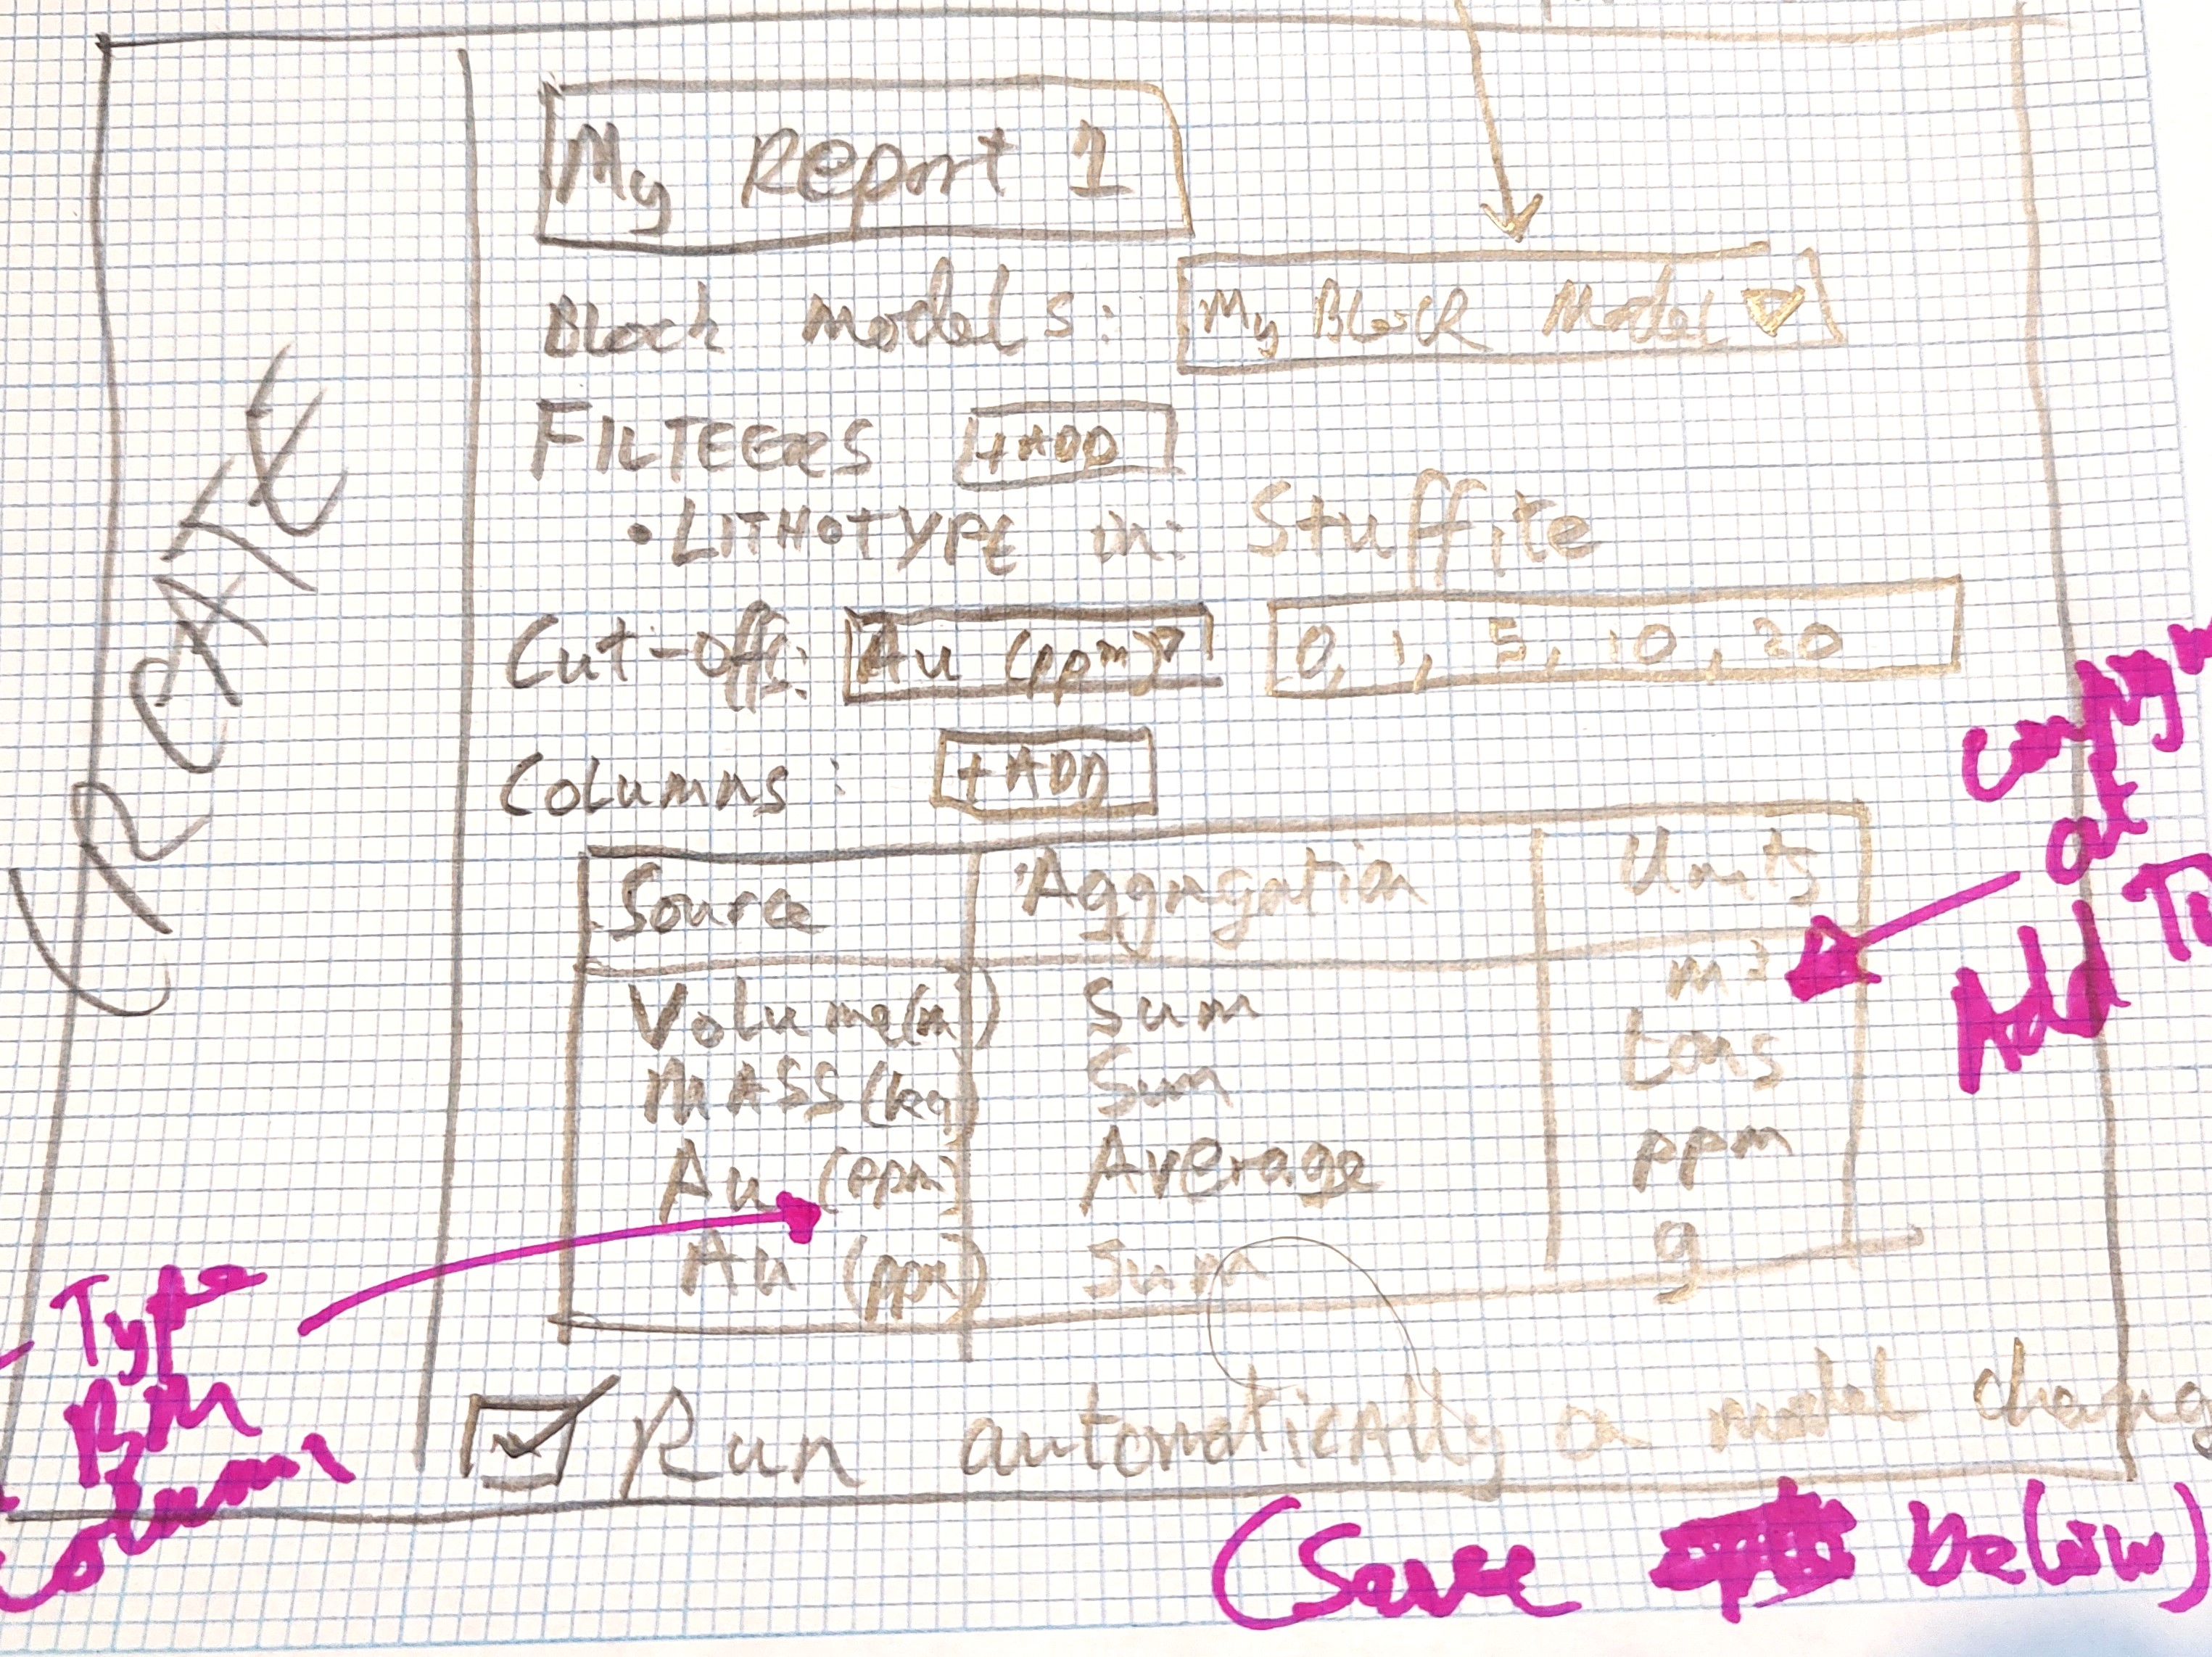 CREATE
My Report 1
Block models: My Block Model
FILTEERS +ADD
• LITHOTYPE in: Stuffite
Cut-offs: Au (ppm) 0, 1, 5, 10, 20
Columns: +ADD
Source Aggregation Units
Volume(m) Sum m³
MASS (kg) Sum tons
Au (ppm) Average ppm
Au (ppm) Sum g
Run automatically on model chang
at
Add
Type
BM
Column
(Save below)